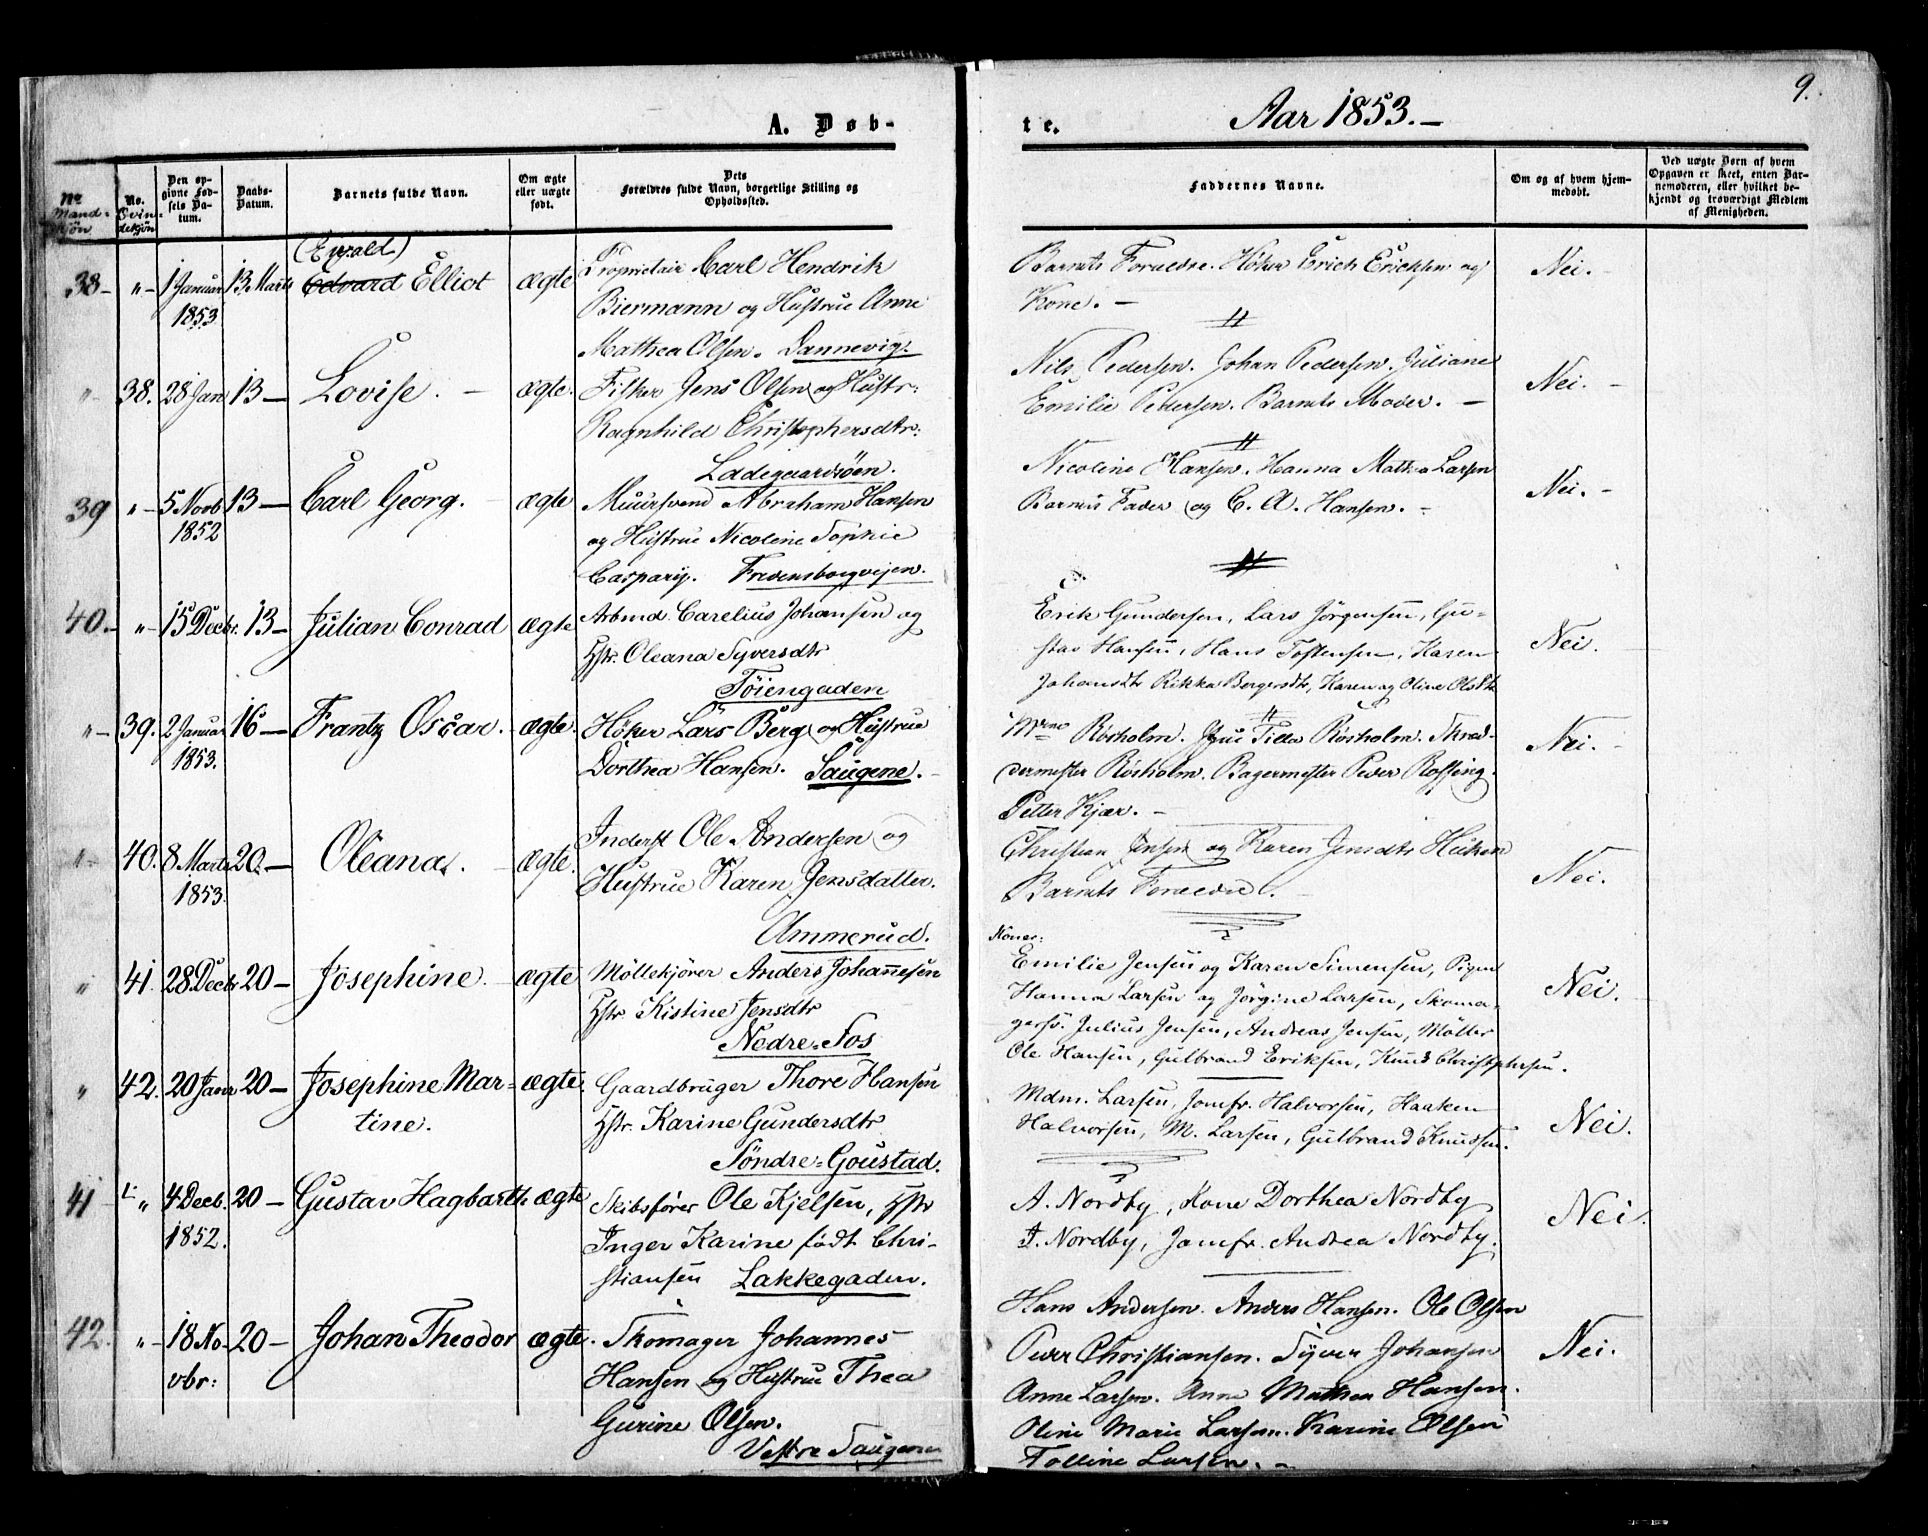 9.
A. Døb-
te.
Aar 1853.—
No Mandkjön
No. Qvindekjön
Den opgivne Fødsels Datum.
Daabs-Datum.
Barnets fulde Navn.
Om ægte eller uægte født.
Dets Forældres fulde Navn, borgerlige Stilling og Opholdssted.
Faddernes Navne.
Om og af hvem hjemmedøbt.
Ved uægte Børn af hvem Opgaven er skeet, enten Barnemoderen, eller hvilket bekjendt og troværdigt Medlem af Menigheden.
(Evald)
38 — „ — 1 Januar 13 Marts Edvard Elliot ægte Proprietair Carl Hendrik
1853
Biermann og Hustrue Anne
Mathea Olsen. Dannevig.
Barnets Forældre. Höker Erich Ericksen og
Kone. —
Nei. —
„ 38. 28 Jan 13 — Lovise. — ægte. Fisker Jens Olsen og Hustr:
Ragnhild Christophersdtr:
Ladegaardsöen.
Nils Pedersen. Johan Pedersen. Juliane
Emilie Pedersen. Barnets Moder. —
Nei. —
39 „ — 5 Novb 13 — Carl Georg. — ægte Muursvend Abraham Hansen
1852
og Hustrue Nicoline Sophie
Caspary. Fredensborgvejen.
Nicoline Hansen. Hanna Mathea Larsen
Barnets Fader og C. A. Hansen. —
Nei. —
40. — „ — 15 Decbr. 13 — Julian Conrad ægte Arbmd. Carelius Johansen og
Hstr. Oleana Syversdtr
Töiengaden
Erik Gundersen, Lars Jörgensen, Gu-
stav Hansen, Hans Tostensen, Karen
Johansdtr Rikka Bergersdtr, Karen og Oline Olsdtr
Nei.
„ — 39. 2 Januar 16 — Frantz Oscar. — ægte. Höker Lars Berg og Hustrue
1853.
Dorthea Hansen. Saugene. —
Mme Rosholm. Jgfr Tilla Rosholm. Skræd-
dermester Rosholm. Bagermester Peder Rossing.
Petter Kjær. —
Nei. —
„ — 40. 8 Marts 20. — Oleana. — ægte. Inderst Ole Andersen og
1853.
Hustrue Karen Jensdatter.
Ammerud.
Christian Jensen og Karen Jensdtr
Barnets Forældre.
Nei.
„ 41. 28 Decbr 20 — Josephine. — ægte Möllekjörer Anders Johannesen
Hstr. Kistine Jensdtr
Nedre-Fos
Koner:
Emilie Jensen og Karen Simensen, Piger
Hanna Larsen og Jörgine Larsen, Skoma-
gersv. Julius Jensen, Andreas Jensen, Möller
Ole Hansen, Gulbrand Eriksen, Knud Christophersen.
Nei.
„ 42. 20 Janr 20 — Josephine Mar- ægte. Gaardbruger Thore Hansen
tine.
Hstr. Karine Gundersdtr
Söndre-Goustad.
Mdm. Larsen, Jomfr. Halvorsen, Haaken
Halvorsen, M. Larsen, Gulbrand Knudsen.
Nei.
41 „ 4 Decb. 20 — Gustav Hagbarth ægte Skibsförer Ole Kjelsen, Hstr
1852.
Inger Karine född Chri-
stiansen Lakkegaden.
A. Nordby, Kone Dorthea Nordby
J. Nordby, Jomfr. Andrea Nordby.
Nei.
42. „ — 18 No- 20 — Johan Theodor ægte. Skomager Johannes
vbr:
Hansen og Hustrue Thea
Gurine Olsen.
Vestre Saugene
Hans Andersen. Anders Hansen. Ole Olsen
Peder Christiansen. Syver Johansen
Anne Larsen. Anne Mathea Hansen.
Oline Marie Larsen. Karine Olsen
Talline Larsen. —
Nei.